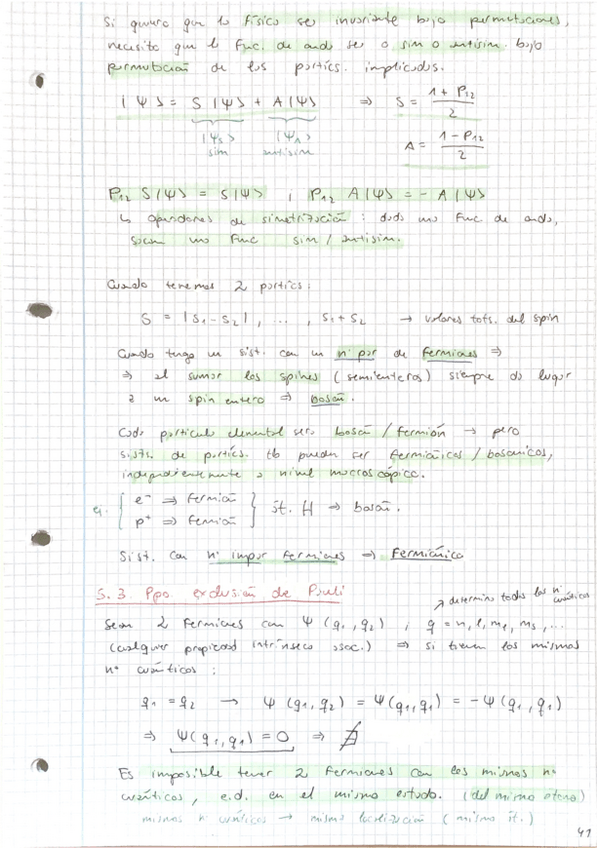 Si quiero que la física sea invariante bajo permutaciones,
necesito que la func. de onda sea o sim o antisim. bajo
permutación de las partícs. implicadas.
|Ψ⟩ = S|Ψ⟩ + A|Ψ⟩ ⇒ S = (1 + P₁₂)/2
|Ψs⟩ |ΨA⟩
sim antisim
A = (1 - P₁₂)/2
P₁₂ S|Ψ⟩ = S|Ψ⟩ ; P₁₂ A|Ψ⟩ = - A|Ψ⟩
↳ operadores de simetrización : dada una func de onda,
sacan una func sim / antisim.
Cuando tenemos 2 partícs:
S = |s₁-s₂|, ... , s₁+s₂ → valores tots. del spin
Cuando tengo un sist. con un nº par de fermiones ⇒
⇒ al sumar los spines (semienteros) siempre da lugar
a un spin entero ⇒ bosón.
Cada partícula elemental será bosón / fermión → pero
sists. de partícs. tb pueden ser fermiónicos / bosónicos,
independientemente a nivel macroscópico.
ej. { e⁻ ⇒ fermión
p⁺ ⇒ fermión } át. H → bosón.
Sist. con nº impar fermiones ⇒ fermiónico
5.3. Ppo. exclusión de Pauli
↗ determina todos los nº cuánticos
Sean 2 fermiones con Ψ(q₁,q₂) , q = n, l, mₑ, mₛ, ...
(cualquier propiedad intrínseca asoc.) ⇒ si tienen los mismos
nº cuánticos :
q₁ = q₂ → Ψ(q₁,q₂) = Ψ(q₁,q₁) = -Ψ(q₁,q₁)
⇒ Ψ(q₁,q₁) = 0 ⇒ ∄
Es imposible tener 2 fermiones con los mismos nº
cuánticos, e.d. en el mismo estado. (del mismo átomo)
mismos nº cuánticos → misma localización (mismo át.)
41